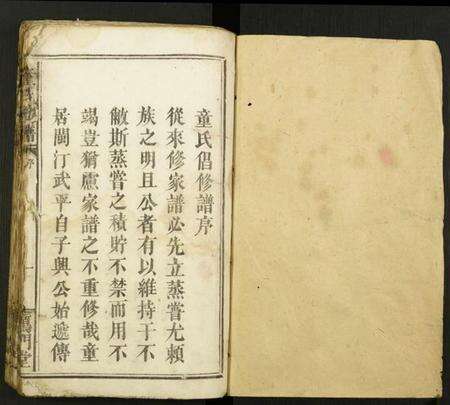 童氏倡修譜序
從來修家譜必先立蒸嘗尤賴
族之明且公者有以維持于不
敝斯蒸嘗之積貯不禁而用不
竭豈猶慮家譜之不重修哉童
居閩汀武平自子興公始遞傳
序
一